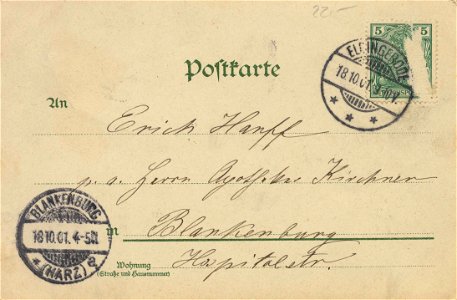 22.-
5 5
Postkarte
ELBINGERODE
18.10.01.
An
Erich Hanff
p. a. Herrn Apotheker Kirchner
in Blankenburg
Hospitalstr.
Wohnung
(Straße und Hausnummer)
BLANKENBURG
18.10.01. 4-5N
* (HARZ) a